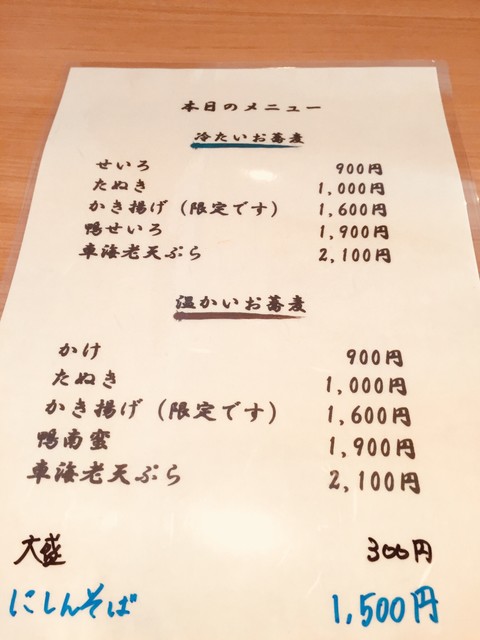 本日のメニュー
冷たいお蕎麦
せいろ 900円
たぬき 1,000円
かき揚げ（限定です） 1,600円
鴨せいろ 1,900円
車海老天ぷら 2,100円
温かいお蕎麦
かけ 900円
たぬき 1,000円
かき揚げ（限定です） 1,600円
鴨南蛮 1,900円
車海老天ぷら 2,100円
大盛 300円
にしんそば 1,500円